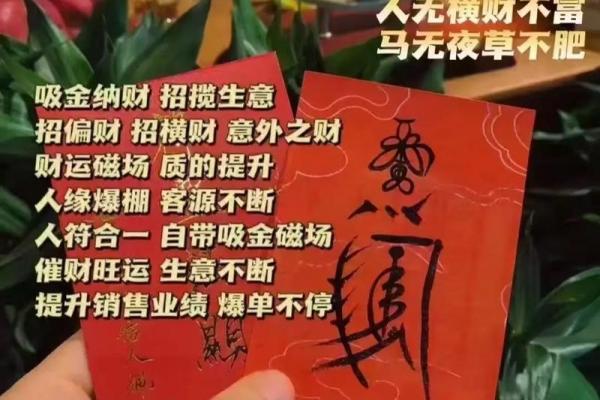 人无横财不富
马无夜草不肥
吸金纳财 招揽生意
招偏财 招横财 意外之财
财运磁场 质的提升
人缘爆棚 客源不断
人符合一 自带吸金磁场
催财旺运 生意不断
提升销售业绩 爆单不停